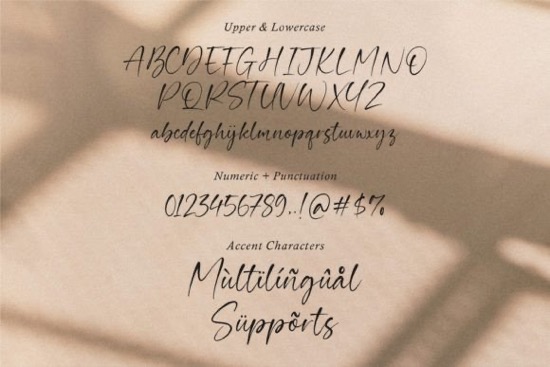 Upper & Lowercase
ABCDEFGHIJKLMNO
PQRSTUVWXYZ
abcdefghijklmnopqrstuvwxyz
Numeric + Punctuation
0123456789.,!@#$%
Accent Characters
Mùltilíñgûål
Süppõrts